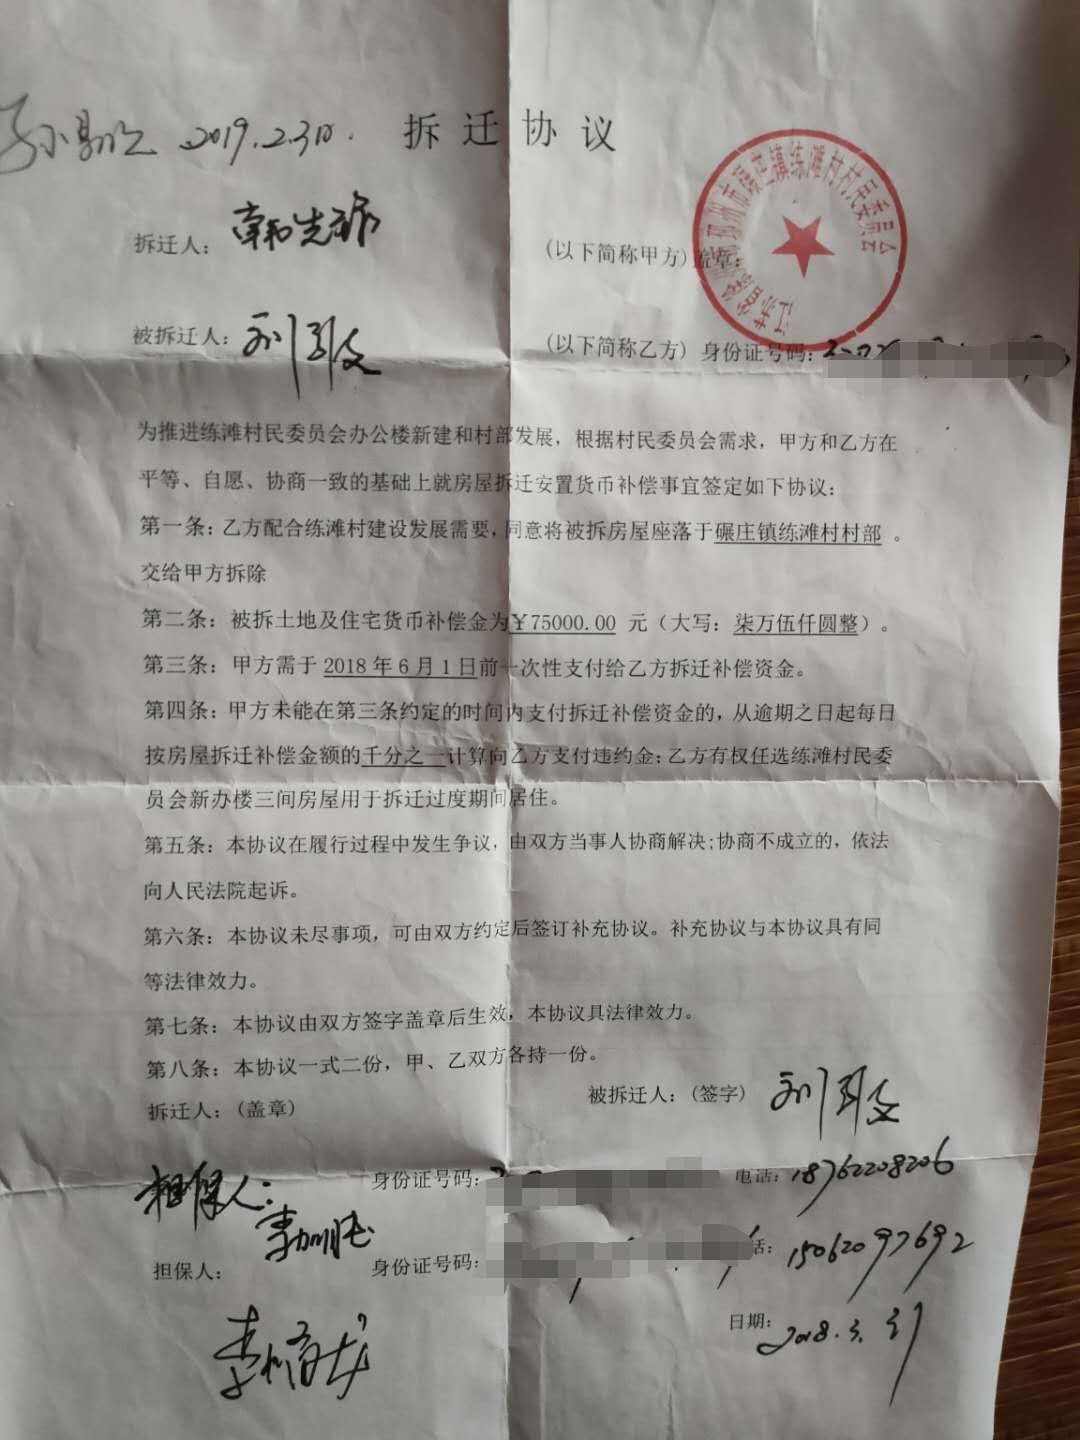 2019.2.3日. 拆迁协议
拆迁人： (以下简称甲方)盖章：
江苏省徐州市邳州市碾庄镇练滩村村民委员会
被拆迁人： (以下简称乙方) 身份证号码：
为推进练滩村民委员会办公楼新建和村部发展，根据村民委员会需求，甲方和乙方在
平等、自愿、协商一致的基础上就房屋拆迁安置货币补偿事宜签定如下协议：
第一条：乙方配合练滩村建设发展需要，同意将被拆房屋座落于碾庄镇练滩村村部 。
交给甲方拆除
第二条：被拆土地及住宅货币补偿金为￥75000.00 元（大写：柒万伍仟圆整）。
第三条：甲方需于 2018 年 6 月 1 日前一次性支付给乙方拆迁补偿资金。
第四条：甲方未能在第三条约定的时间内支付拆迁补偿资金的，从逾期之日起每日
按房屋拆迁补偿金额的千分之一计算向乙方支付违约金；乙方有权任选练滩村民委
员会新办楼三间房屋用于拆迁过度期间居住。
第五条：本协议在履行过程中发生争议，由双方当事人协商解决;协商不成立的，依法
向人民法院起诉。
第六条：本协议未尽事项，可由双方约定后签订补充协议。补充协议与本协议具有同
等法律效力。
第七条：本协议由双方签字盖章后生效，本协议具法律效力。
第八条：本协议一式二份，甲、乙双方各持一份。
拆迁人：(盖章) 被拆迁人：(签字)
担保人： 身份证号码： 电话：18762208206
担保人： 身份证号码： 话：15062097692
日期：2018.3.31